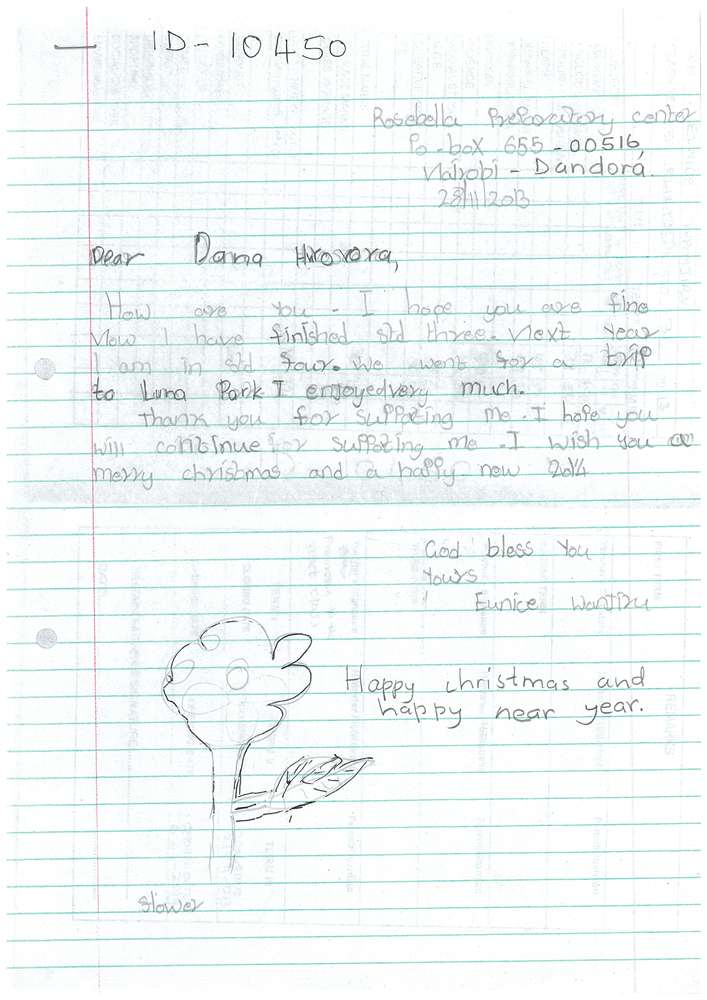 ID-10450
Rosebella Preparatory center
Po-box 655-00516,
Nairobi - Dandora.
28/11/2013
Dear Dama
How are you - I hope you are fine
Now I have finished std three. Next year
I am in std four. We went for a trip
to Luna Park I enjoyed very much.
Thank you for suppoting me. I hope you
will continue for suppoting me. I wish you a
merry christmas and a happy new 2014
God bless you
Yours
Eunice
Happy christmas and
happy near year.
slower